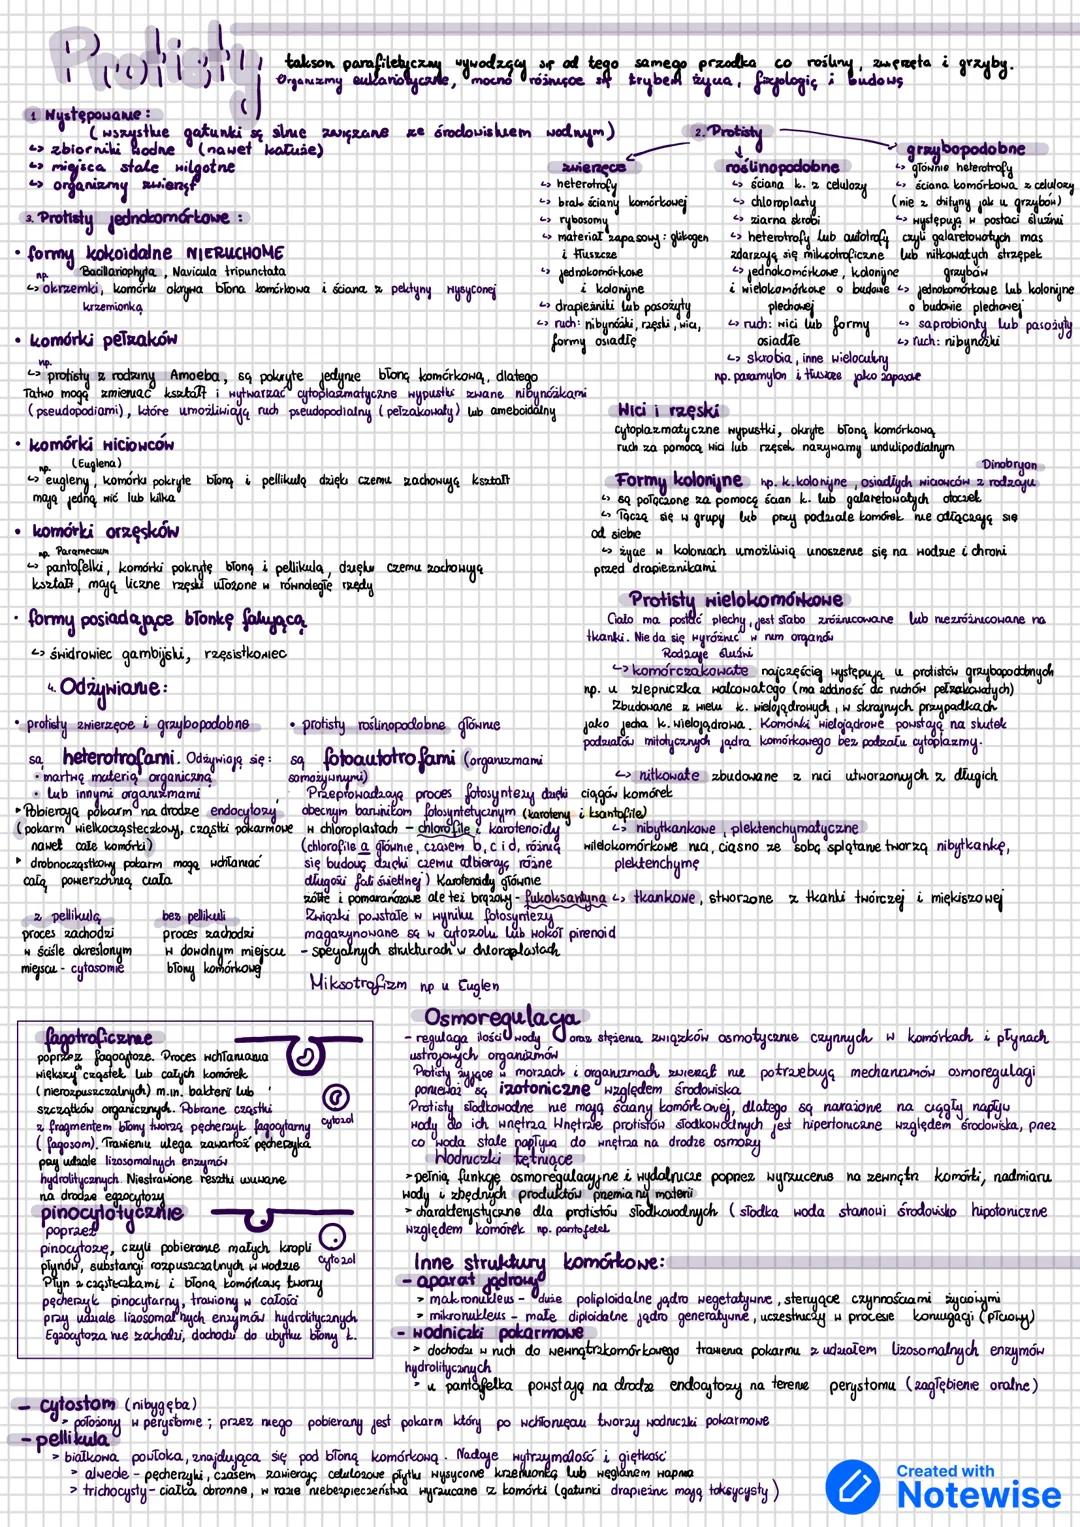 Protisty
takson parafiletyczny wywodzący się od tego samego przodka co rośliny, zwierzęta i grzyby.
Organizmy eukariotyczne, mocno różniące się trybem życia, fizjologią i budową
1. Występowanie:
(wszystkie gatunki są silnie związane ze środowiskiem wodnym)
↳ zbiorniki wodne (nawet kałuże)
↳ miejsca stale wilgotne
↳ organizmy zwierząt
2. Protisty
zwierzęce
↳ heterotrofy
↳ brak ściany komórkowej
↳ rybosomy
↳ materiał zapasowy: glikogen
i tłuszcze
↳ jednokomórkowe
i kolonijne
↳ drapieżniki lub pasożyty
↳ ruch: nibynóżki, rzęski, wici,
formy osiadłe
roślinopodobne
↳ ściana k. z celulozy
↳ chloroplasty
↳ ziarna skrobi
↳ heterotrofy lub autotrofy
zdarzają się miksotroficzne
↳ jednokomórkowe, kolonijne
i wielokomórkowe o budowie
plechowej
↳ ruch: wici lub formy
osiadłe
↳ skrobia, inne wielocukry
np. paramylon i tłuszcze jako zapasowe
grzybopodobne
↳ głównie heterotrofy
↳ ściana komórkowa z celulozy
(nie z chityny jak u grzybów)
↳ występują w postaci śluźni
czyli galaretowatych mas
lub nitkowatych strzępek
grzybów
↳ jednokomórkowe lub kolonijne
o budowie plechowej
↳ saprobionty lub pasożyty
↳ ruch: nibynóżki
3. Protisty jednokomórkowe:
• formy kokoidalne NIERUCHOME
np. Bacillariophyta, Navicula tripunctata
↳ okrzemki, komórki okrywa błona komórkowa i ściana z pektyny wysyconej
krzemionką
• komórki pełzaków
np.
↳ protisty z rodziny Amoeba, są pokryte jedynie błoną komórkową, dlatego
łatwo mogą zmieniać kształt i wytwarzać cytoplazmatyczne wypustki zwane nibynóżkami
(pseudopodiami), które umożliwiają ruch pseudopodialny (pełzakowaty) lub ameboidalny
• komórki wiciowców
np. (Euglena)
↳ eugleny, komórki pokryte błoną i pellikulą dzięki czemu zachowują kształt
mają jedną wić lub kilka
• komórki orzęsków
np. Paramecium
↳ pantofelki, komórki pokryte błoną i pellikulą, dzięki czemu zachowują
kształt, mają liczne rzęski ułożone w równoległe rzędy
• formy posiadające błonkę falującą
↳ świdrowiec gambijski, rzęsistkowiec
Wici i rzęski
cytoplazmatyczne wypustki, okryte błoną komórkową
ruch za pomocą wici lub rzęsek nazywamy undulipodialnym
Dinobryon
Formy kolonijne np. k. kolonijne, osiadłych wiciowców z rodzaju
↳ są połączone za pomocą ścian k. lub galaretowatych otoczek
↳ łączą się w grupy lub przy podziale komórek nie odłączają się
od siebie
↳ życie w koloniach umożliwia unoszenie się na wodzie i chroni
przed drapieżnikami
Protisty wielokomórkowe
Ciało ma postać plechy, jest słabo zróżnicowane lub niezróżnicowane na
tkanki. Nie da się wyróżnić w nim organów
Rodzaje śluźni
↳ komórczakowate najczęściej występują u protistów grzybopodobnych
np. u zlepniczka walcowatego (ma zdolność do ruchów pełzakowatych)
Zbudowane z wielu k. wielojądrowych, w skrajnych przypadkach
jako jedna k. wielojądrowa. Komórki wielojądrowe powstają na skutek
podziałów mitotycznych jądra komórkowego bez podziału cytoplazmy.
↳ nitkowate zbudowane z nici utworzonych z długich
ciągów komórek
↳ nibytkankowe, plektenchymatyczne
wielokomórkowe nici, ciasno ze sobą splątane tworzą nibytkankę,
plektenchymę
↳ tkankowe, stworzone z tkanki twórczej i miękiszowej
4. Odżywianie:
• protisty zwierzęce i grzybopodobne
są heterotrofami. Odżywiają się:
• martwą materią organiczną
• lub innymi organizmami
▸ Pobierają pokarm na drodze endocytozy
(pokarm wielkocząsteczkowy, cząstki pokarmowe
nawet całe komórki)
▸ drobnocząstkowy pokarm mogą wchłaniać
całą powierzchnią ciała
z pellikulą
proces zachodzi
w ściśle określonym
miejscu - cytosomie
bez pellikuli
proces zachodzi
w dowolnym miejscu
błony komórkowej
• protisty roślinopodobne głównie
są fotoautotrofami (organizmami
samożywnymi)
Przeprowadzają proces fotosyntezy dzięki
obecnym barwnikom fotosyntetycznym (karoteny i ksantofile)
w chloroplastach - chlorofile i karotenoidy
(chlorofile a głównie, czasem b, c i d, różnią
się budową dzięki czemu odbierają różne
długości fali świetlnej) Karotenoidy głównie
żółte i pomarańczowe ale też brązowy - fukoksantyna
Związki powstałe w wyniku fotosyntezy
magazynowane są w cytozolu lub wokół pirenoid
- specjalnych strukturach w chloroplastach
Miksotrofizm np u Euglen
fagotroficznie
poprzez fagocytozę. Proces wchłaniania
większych cząstek lub całych komórek
(nierozpuszczalnych) m.in. bakterii lub
szczątków organicznych. Pobrane cząstki
z fragmentem błony tworzą pęcherzyk fagocytarny
(fagosom). Trawieniu ulega zawartość pęcherzyka
przy udziale lizosomalnych enzymów
hydrolitycznych. Niestrawione resztki usuwane
na drodze egzocytozy
cytozol
pinocytotycznie
poprzez
pinocytozę, czyli pobieranie małych kropli
płynów, substancji rozpuszczalnych w wodzie
Płyn z cząsteczkami i błoną komórkową tworzy
pęcherzyk pinocytarny, trawiony w całości
przy udziale lizosomalnych enzymów hydrolitycznych
Egzocytoza nie zachodzi, dochodzi do ubytku błony k.
cytozol
Osmoregulacja
- regulacja ilości wody oraz stężenia związków osmotycznie czynnych w komórkach i płynach
ustrojowych organizmów
Protisty żyjące w morzach i organizmach zwierząt nie potrzebują mechanizmów osmoregulacji
ponieważ są izotoniczne względem środowiska
Protisty słodkowodne nie mają ściany komórkowej, dlatego są narażone na ciągły napływ
wody do ich wnętrza Wnętrze protistów słodkowodnych jest hipertoniczne względem środowiska, przez
co woda stale napływa do wnętrza na drodze osmozy
Wodniczki tętniące
> pełnią funkcję osmoregulacyjne i wydalnicze poprzez wyrzucenie na zewnątrz komórki, nadmiaru
wody i zbędnych produktów przemiany materii
> charakterystyczne dla protistów słodkowodnych (słodka woda stanowi środowisko hipotoniczne
względem komórek np. pantofelek
Inne struktury komórkowe:
- aparat jądrowy
> makronukleus - duże poliploidalne jądro wegetatywne, sterujące czynnościami życiowymi
> mikronukleus - małe diploidalne jądro generatywne, uczestniczy w procesie koniugacji (płciowy)
- wodniczki pokarmowe
> dochodzi w nich do wewnątrzkomórkowego trawienia pokarmu z udziałem lizosomalnych enzymów
hydrolitycznych
> u pantofelka powstają na drodze endocytozy na terenie perystomu (zagłębienie oralne)
- cytostom (nibygęba)
> położony w perystomie; przez niego pobierany jest pokarm który po wchłonięciu tworzy wodniczki pokarmowe
- pellikula
> białkowa powłoka, znajdująca się pod błoną komórkową. Nadaje wytrzymałość i giętkość
> alweole - pęcherzyki, czasem zawierają celulozowe płytki wysycone krzemionką lub węglanem wapnia
> trichocysty - ciałka obronne, w razie niebezpieczeństwa wyrzucane z komórki (gatunki drapieżne mają toksycysty)
Created with
Notewise